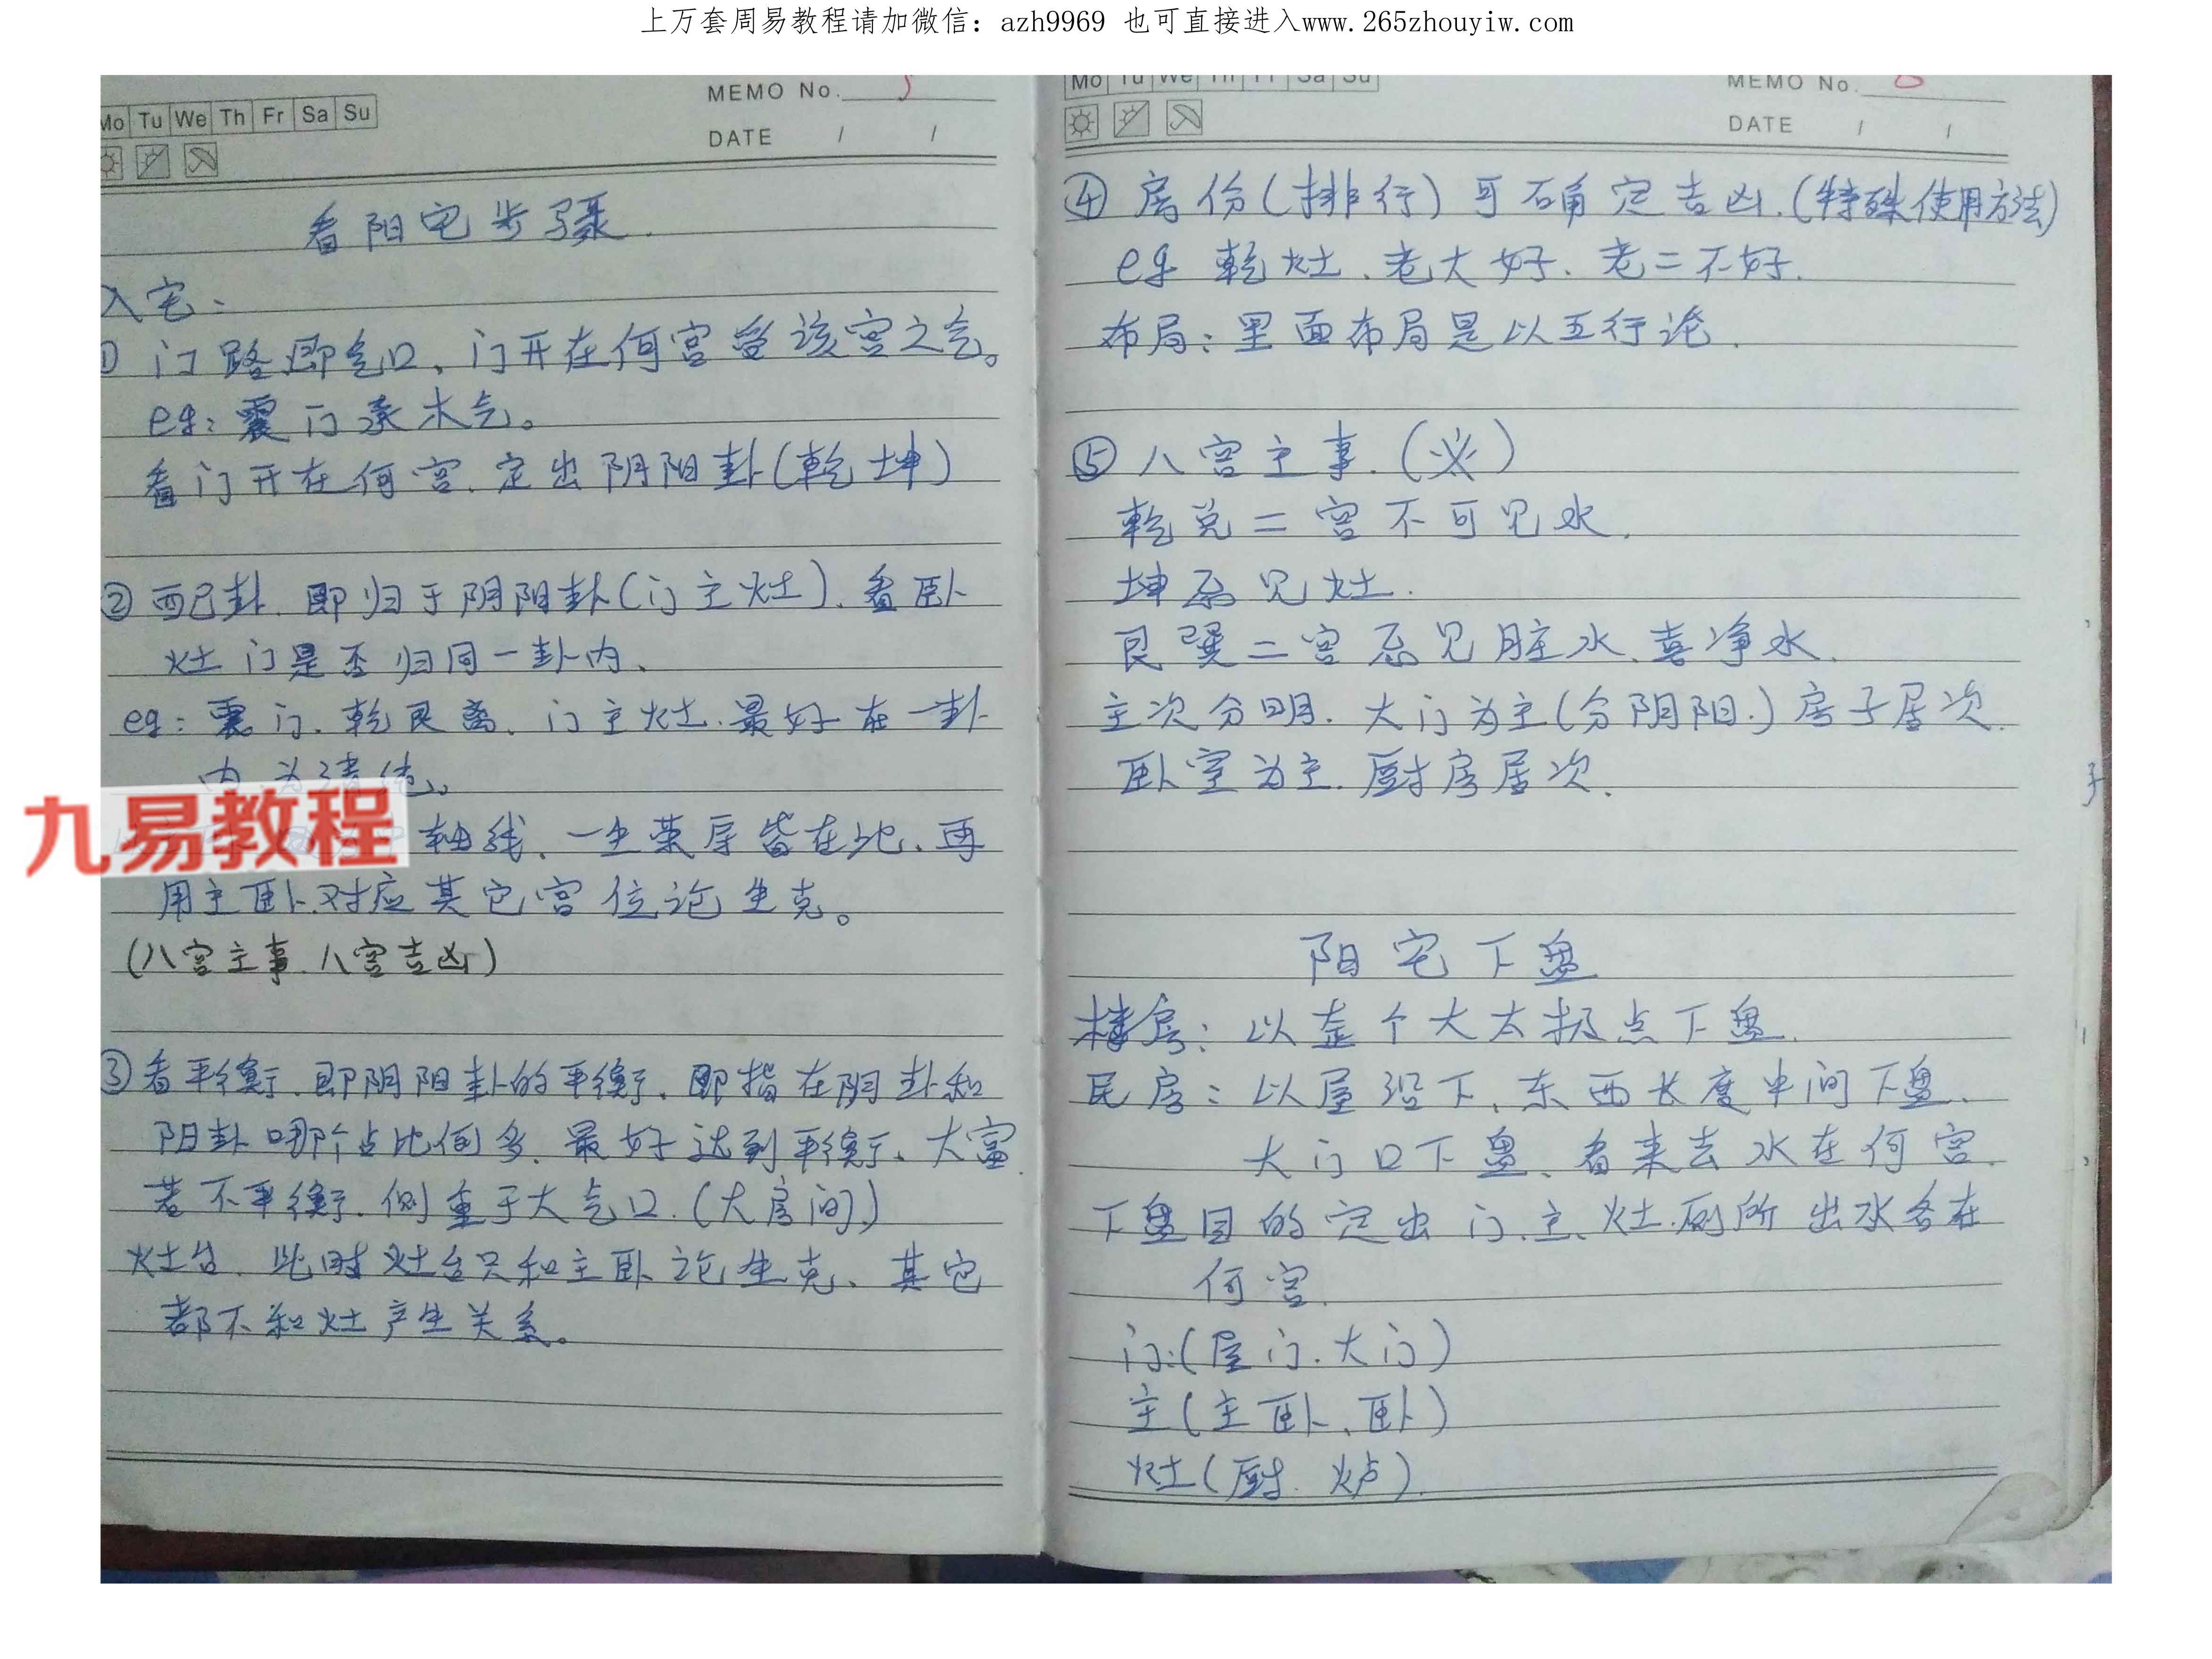 上万套周易教程请加微信：azh9969 也可直接进入www.265zhouyiw.com
Mo Tu We Th Fr Sa Su
MEMO No. 5
DATE / /
看阳宅步骤.
入宅：
① 门路即气口、门开在何宫受该宫之气。
eg：震门承木气。
看门开在何宫、定出阴阳卦(乾坤)
② 配卦、即归于阴阳卦(门主灶)、看卧
灶门是否归同一卦内、
eg：震门、乾艮离、门主灶、最好在一卦
内、为清纯。
轴线、一生荣辱皆在此、再
用主卧对应其它宫位论生克。
(八宫主事、八宫吉凶)
③ 看平衡、即阴阳卦的平衡、即指在阴卦和
阳卦哪个占比例多、最好达到平衡、大富、
若不平衡、侧重于大气口.(大房间)
灶台、此时灶台只和主卧论生克、其它
都不和灶产生关系。
九易教程
Mo Tu We Th Fr Sa Su
MEMO No.
DATE / /
④ 房份(排行)可确定吉凶.(特殊使用方法)
eg 乾灶、老大好、老二不好.
布局：里面布局是以五行论.
⑤ 八宫主事.(必)
乾兑二宫不可见水.
坤忌见灶.
艮巽二宫忌见脏水、喜净水.
主次分明、大门为主(分阴阳.)房子居次.
卧室为主、厨房居次.
阳宅下盘
楼房：以整个大太极点下盘.
民房：以屋沿下、东西长度中间下盘、
大门口下盘、看来去水在何宫.
下盘目的定出门、主、灶、厕所出水各在
何宫.
门：(屋门、大门)
主(主卧、卧)
灶(厨、炉).